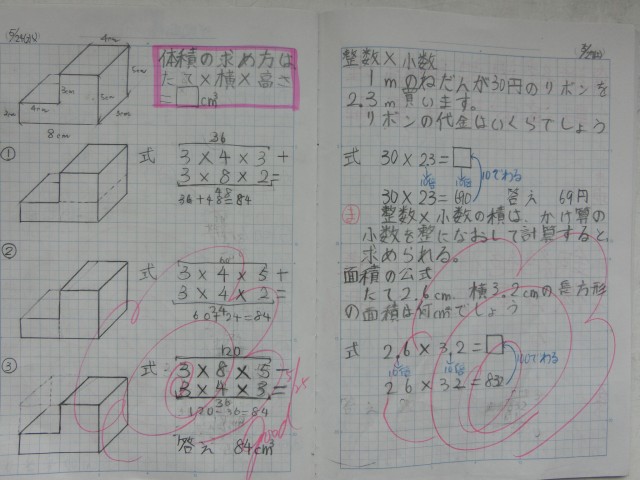 5/24(火)
4cm
5cm
3cm
4cm
2cm
3cm
8cm
体積の求め方は、
たて×横×高さ
=□cm³
①
式
36
3×4×3+
3×8×2=
48
36+48=84
②
式
60
3×4×5+
3×4×2=
24
60+24=84
③
式
120
3×8×5-
3×4×3=
36
120-36=84
答え 84cm³
good
整数×小数
1mのねだんが30円のリボンを
2.3m買います。
リボンの代金はいくらでしょう
式 30×2.3=□
10倍 10倍 10でわる
30×23=690 答え 69円
ま 整数×小数の積は、かけ算の
小数を整になおして計算すると、
求められる。
面積の公式
たて2.6cm、横3.2cmの長方形
の面積は何cm²でしょう
式 2.6×3.2=□
10倍 10倍 100でわる
26×32=832